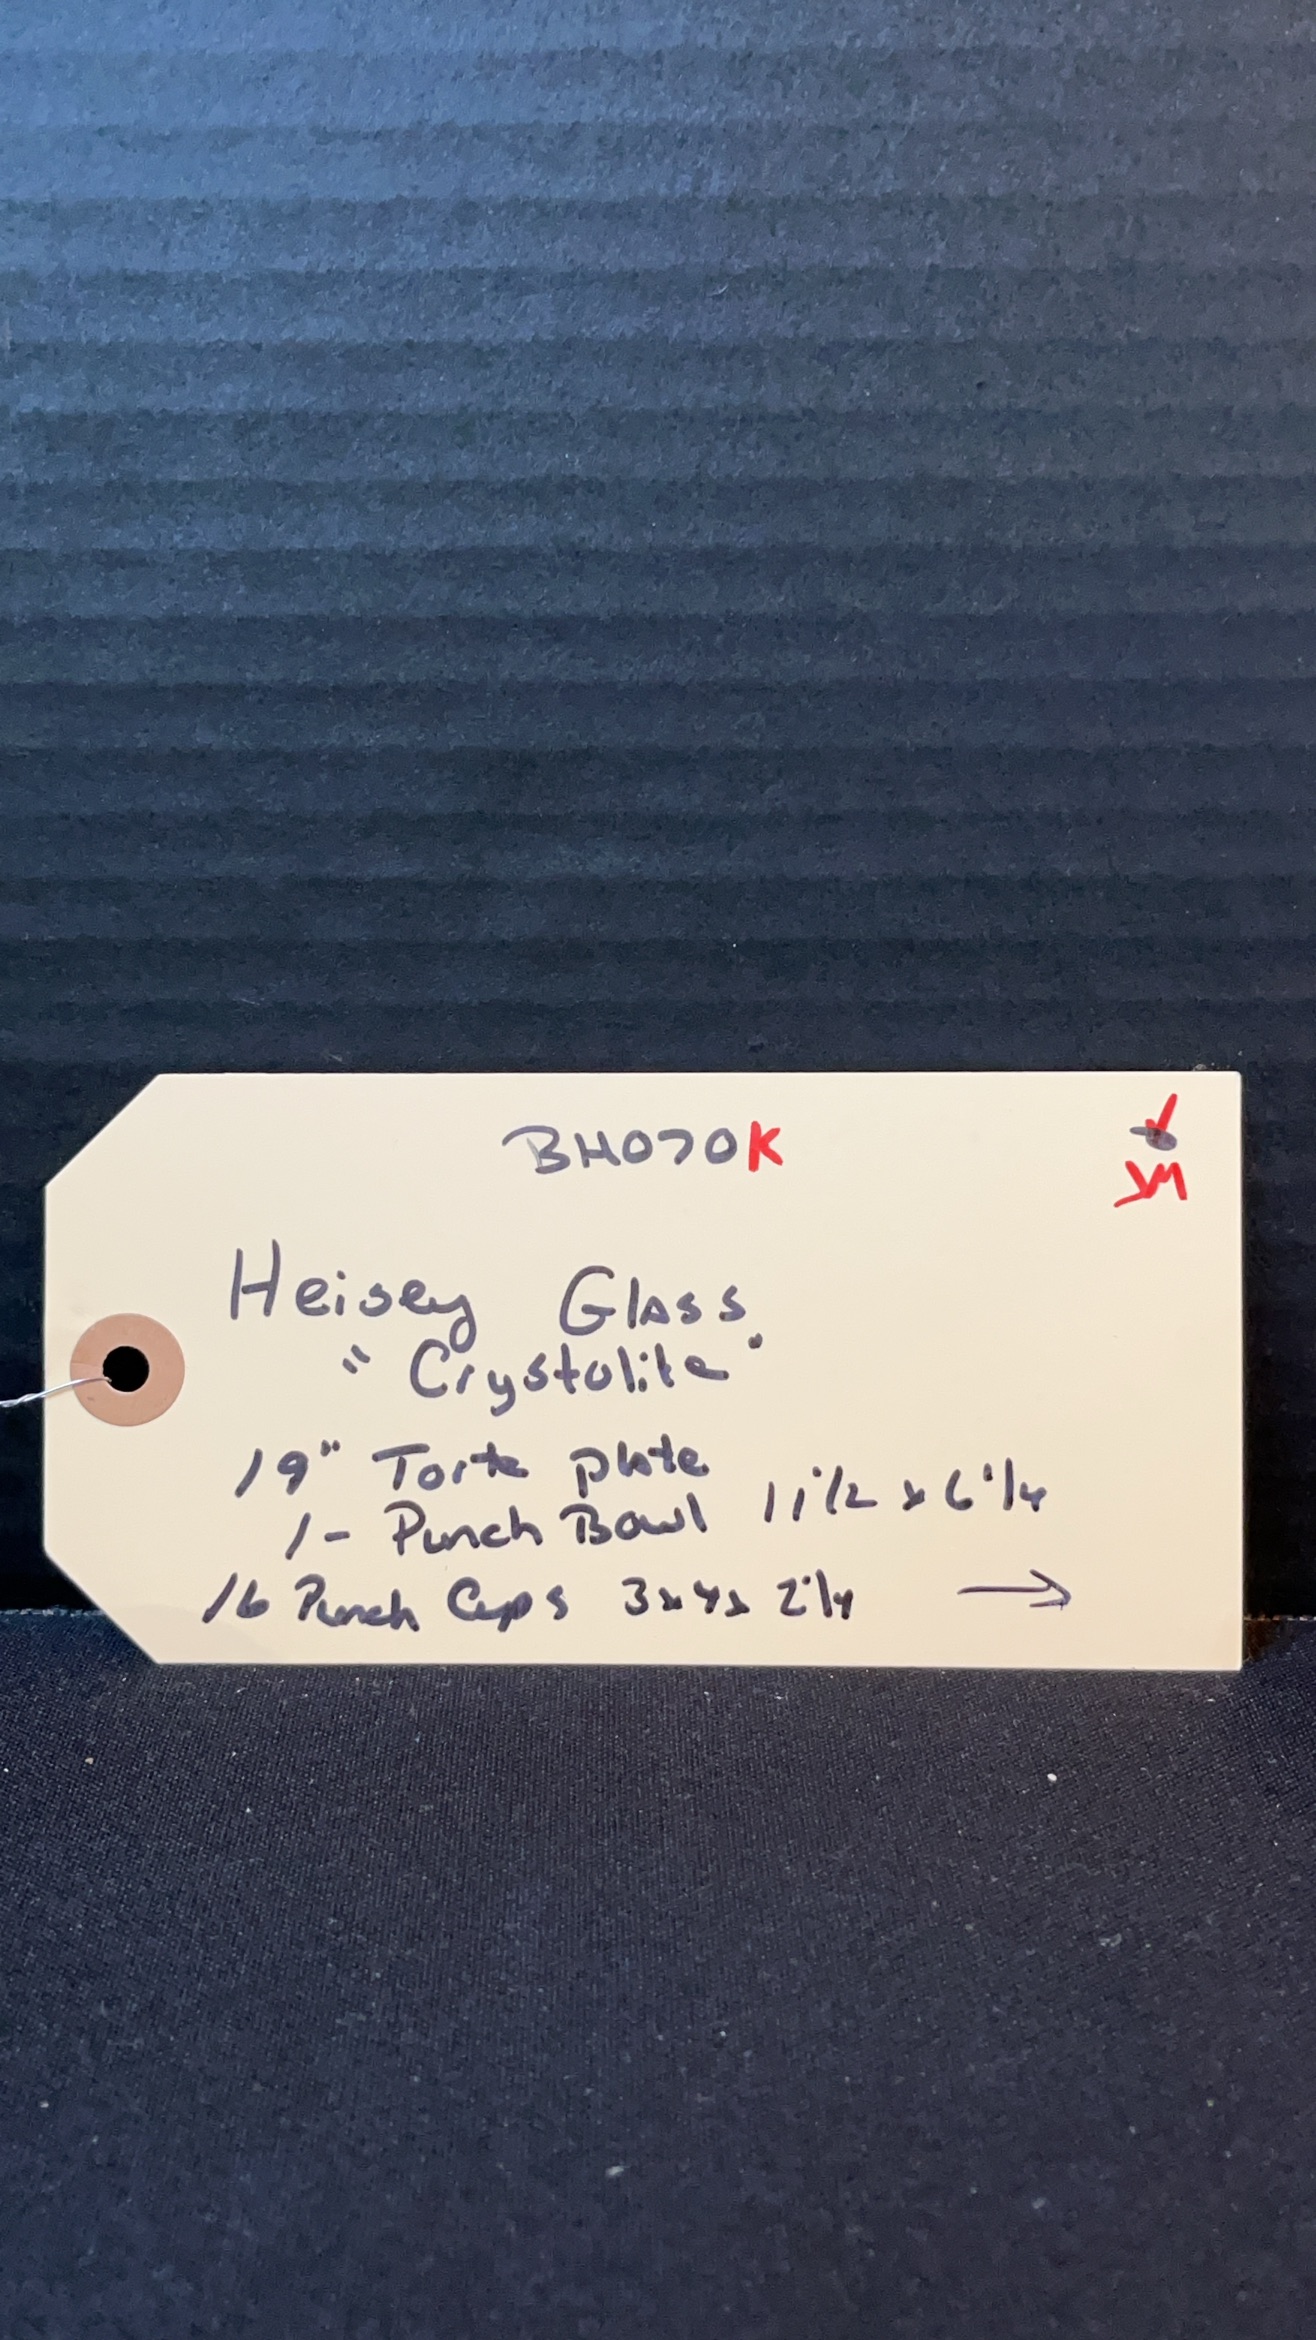 BH070K
JM
Heisey Glass
"Crystolite"
19" Torte plate
1- Punch Bowl 11 1/2 x 6 1/4
16 Punch Cups 3x4x 2 1/4 →